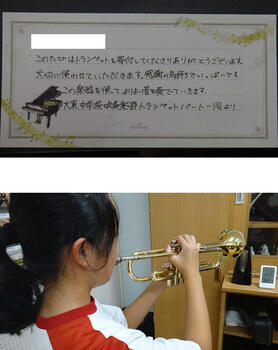 このたびはトランペットを寄付してくださりありがとうございます。
大切に使わせていただきます。感謝の気持ちでいっぱいです。
この楽器を使ってよりよい音を奏でていきます。
大東中学校吹奏楽部トランペットパート一同より